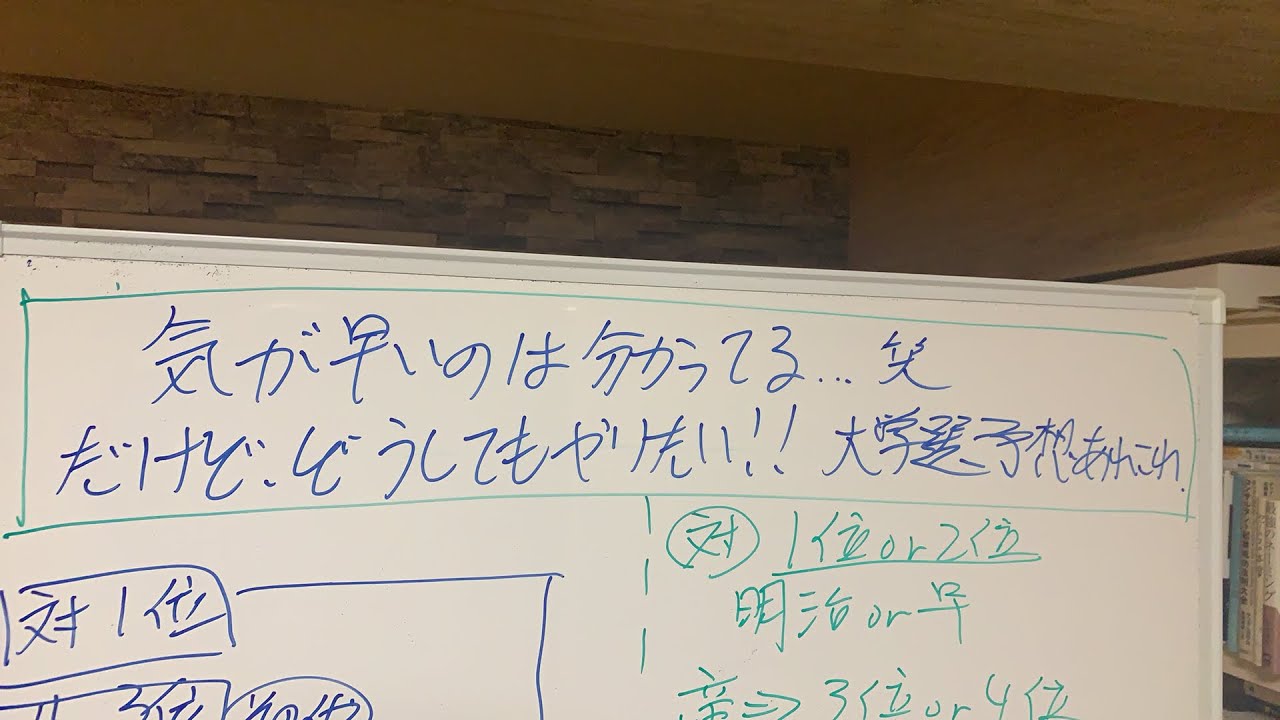 気が早いのは分かってる... 笑
だけど、どうしてもやりたい!! 大学選予想あれこれ.
対 1位or2位
明治or早
対1位
3位or4位
3位